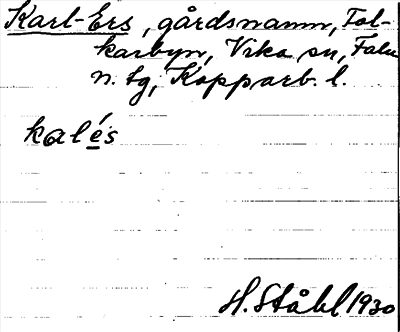 Karl-Ers, gårdsnamn, Fol-
karbyn, Vika sn, Falu
n. tg, Kopparb. l.
kalés
H. Ståhl 1930